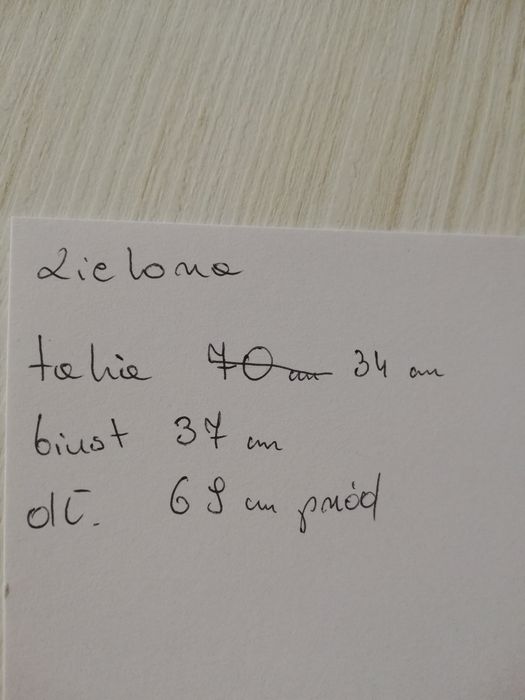 zielona
talia 70 cm 34 cm
biust 37 cm
dł. 69 cm przód